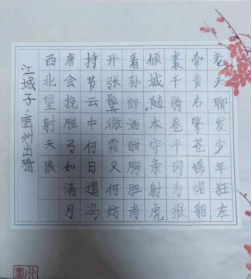 老夫聊发少年狂左
牵黄右擎苍锦帽貂
裘千骑卷平冈为报
倾城随太守亲射虎
看孙郎酒酣胸胆尚
开张鬓微霜又何妨
持节云中何日遣冯
唐会挽雕弓如满月
西北望射天狼
江城子·密州出猎